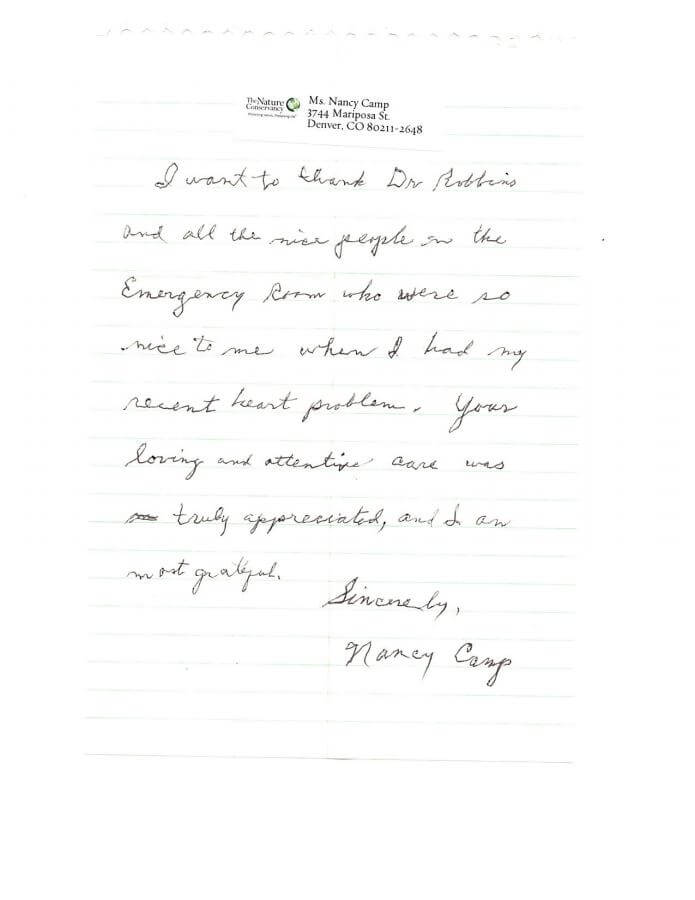 The Nature
Conservancy
Ms. Nancy Camp
3744 Mariposa St.
Denver, CO 80211-2648
I want to thank Dr Robbins
and all the nice people in the
Emergency Room who were so
nice to me when I had my
recent heart problem. Your
loving and attentive care was
truly appreciated, and I am
most grateful.
Sincerely,
Nancy Camp